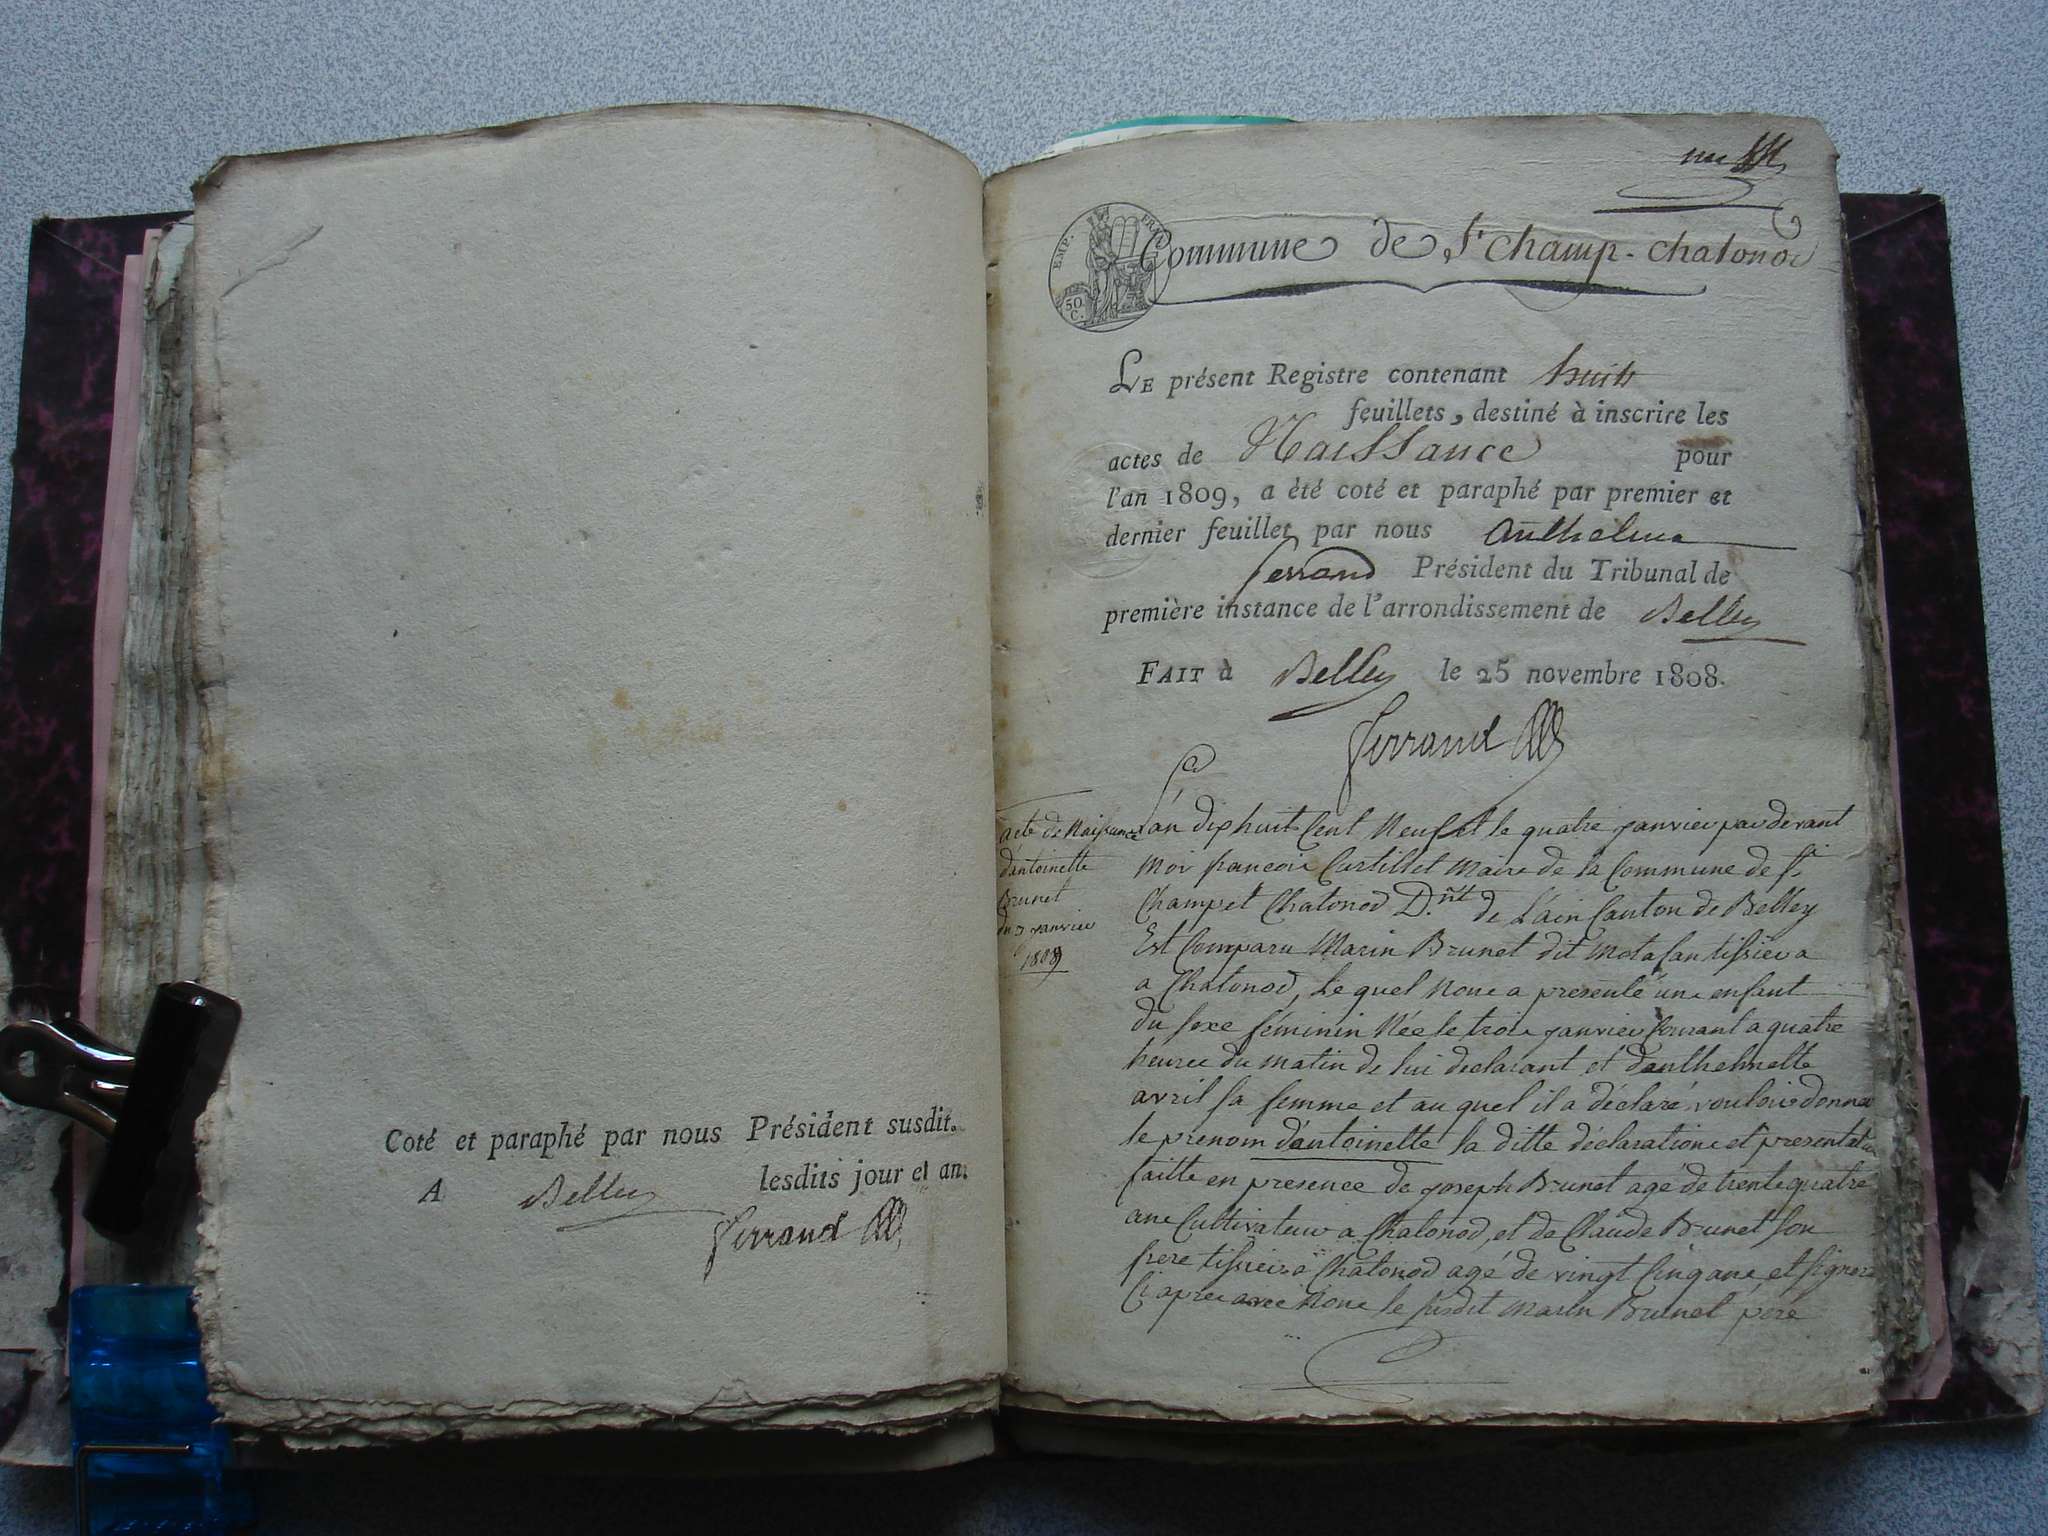 Coté et paraphé par nous Président susdit.
lesdits jour et an.
A Belley
Ferrand
un
EMP. FRAN
50 C.
Commune de St champ - chatonod
LE présent Registre contenant huit
feuillets, destiné à inscrire les
actes de Naissance pour
l'an 1809, a été coté et paraphé par premier et
dernier feuillet par nous Anthelme
ferrand Président du Tribunal de
première instance de l'arrondissement de Belley
FAIT à Belley le 25 novembre 1808.
Ferrand
acte de Naissance
d'antoinette
Brunet
du 3 janvier
1809
L'an dix huit Cent Neuf et le quatre janvier par devant
Moi francois Curtillet Maire de la Commune de st
Champ et Chatonod D.nt de L'ain Canton de Belley
Est Comparu Marin Brunet dit tissier a
a Chatonod, Le quel Nous a presenté une enfant
du sexe féminin Née le trois janvier Courant a quatre
heures du matin de lui declarant et danthelmette
avril sa femme et au quel il a déclaré vouloir donner
le prenom d'antoinette la ditte déclaration et presentation
faitte en presence de joseph Brunet agé de trente quatre
ans Cultivateur a Chatonod, et de Claude Brunet son
frere tissier a Chatonod agé de vingt Cinq ans, et signera
Ci apres avec Nous le susdit Marin Brunet père